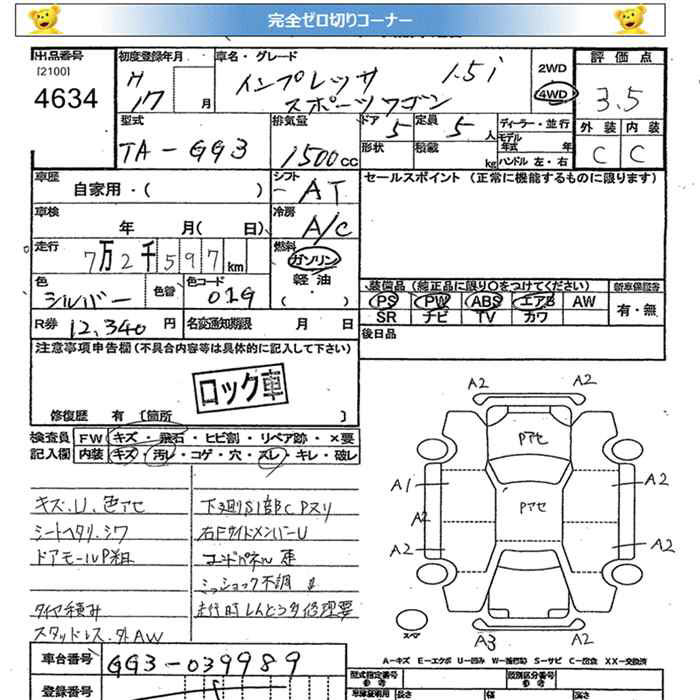 完全ゼロ切りコーナー
出品番号
[2100]
4634
初度登録年月
H
17 月
車名・グレード
インプレッサ 1.5i
スポーツワゴン
2WD
4WD
評価点
3.5
外装 内装
C C
型式
TA-GG3
排気量
1500cc
ドア 5
定員 5人
形状
積載 kg
ディーラー・並行
モデル年式 年
ハンドル 左・右
車歴
自家用・( )
シフト
AT
車検
年 月( 日)
冷房
A/C
走行
7万2千597km
燃料
ガソリン
軽油
( )
色
シルバー
色替
色コード
01G
R券 12,340円
名変通知期限 月 日
セールスポイント(正常に機能するものに限ります)
装備品(純正品に限り○をつけてください)
PS PW ABS エアB AW
SR ナビ TV カワ
新車保証書
有・無
後日品
注意事項申告欄(不具合内容等は具体的に記入して下さい)
ロック車
修復歴 有 [箇所 ]
検査員 FW キズ・飛石・ヒビ割・リペア跡・×要
記入欄 内装 キズ・汚レ・コゲ・穴・スレ・キレ・破レ
キズ.U.色アセ
シートヘタリ.シワ
ドアモールP粗
タイヤ積み
スタッドレス.外AW
下廻りS1部C Pスリ
右FサイドメンバーU
コードパネル
ミッション不調
走行時しんどう多修理要
A2 A2
Pアセ
A1 A2
Pアセ
A2
A2 A2
スペア
A3 A2
A-キズ E-エクボ U-凹み W-補修跡 S-サビ C-腐食 XX-交換済
車台番号
GG3-039989
登録番号
型式指定番号
参考
類別区分番号
参考
車検証明用
長さ
幅
高さ